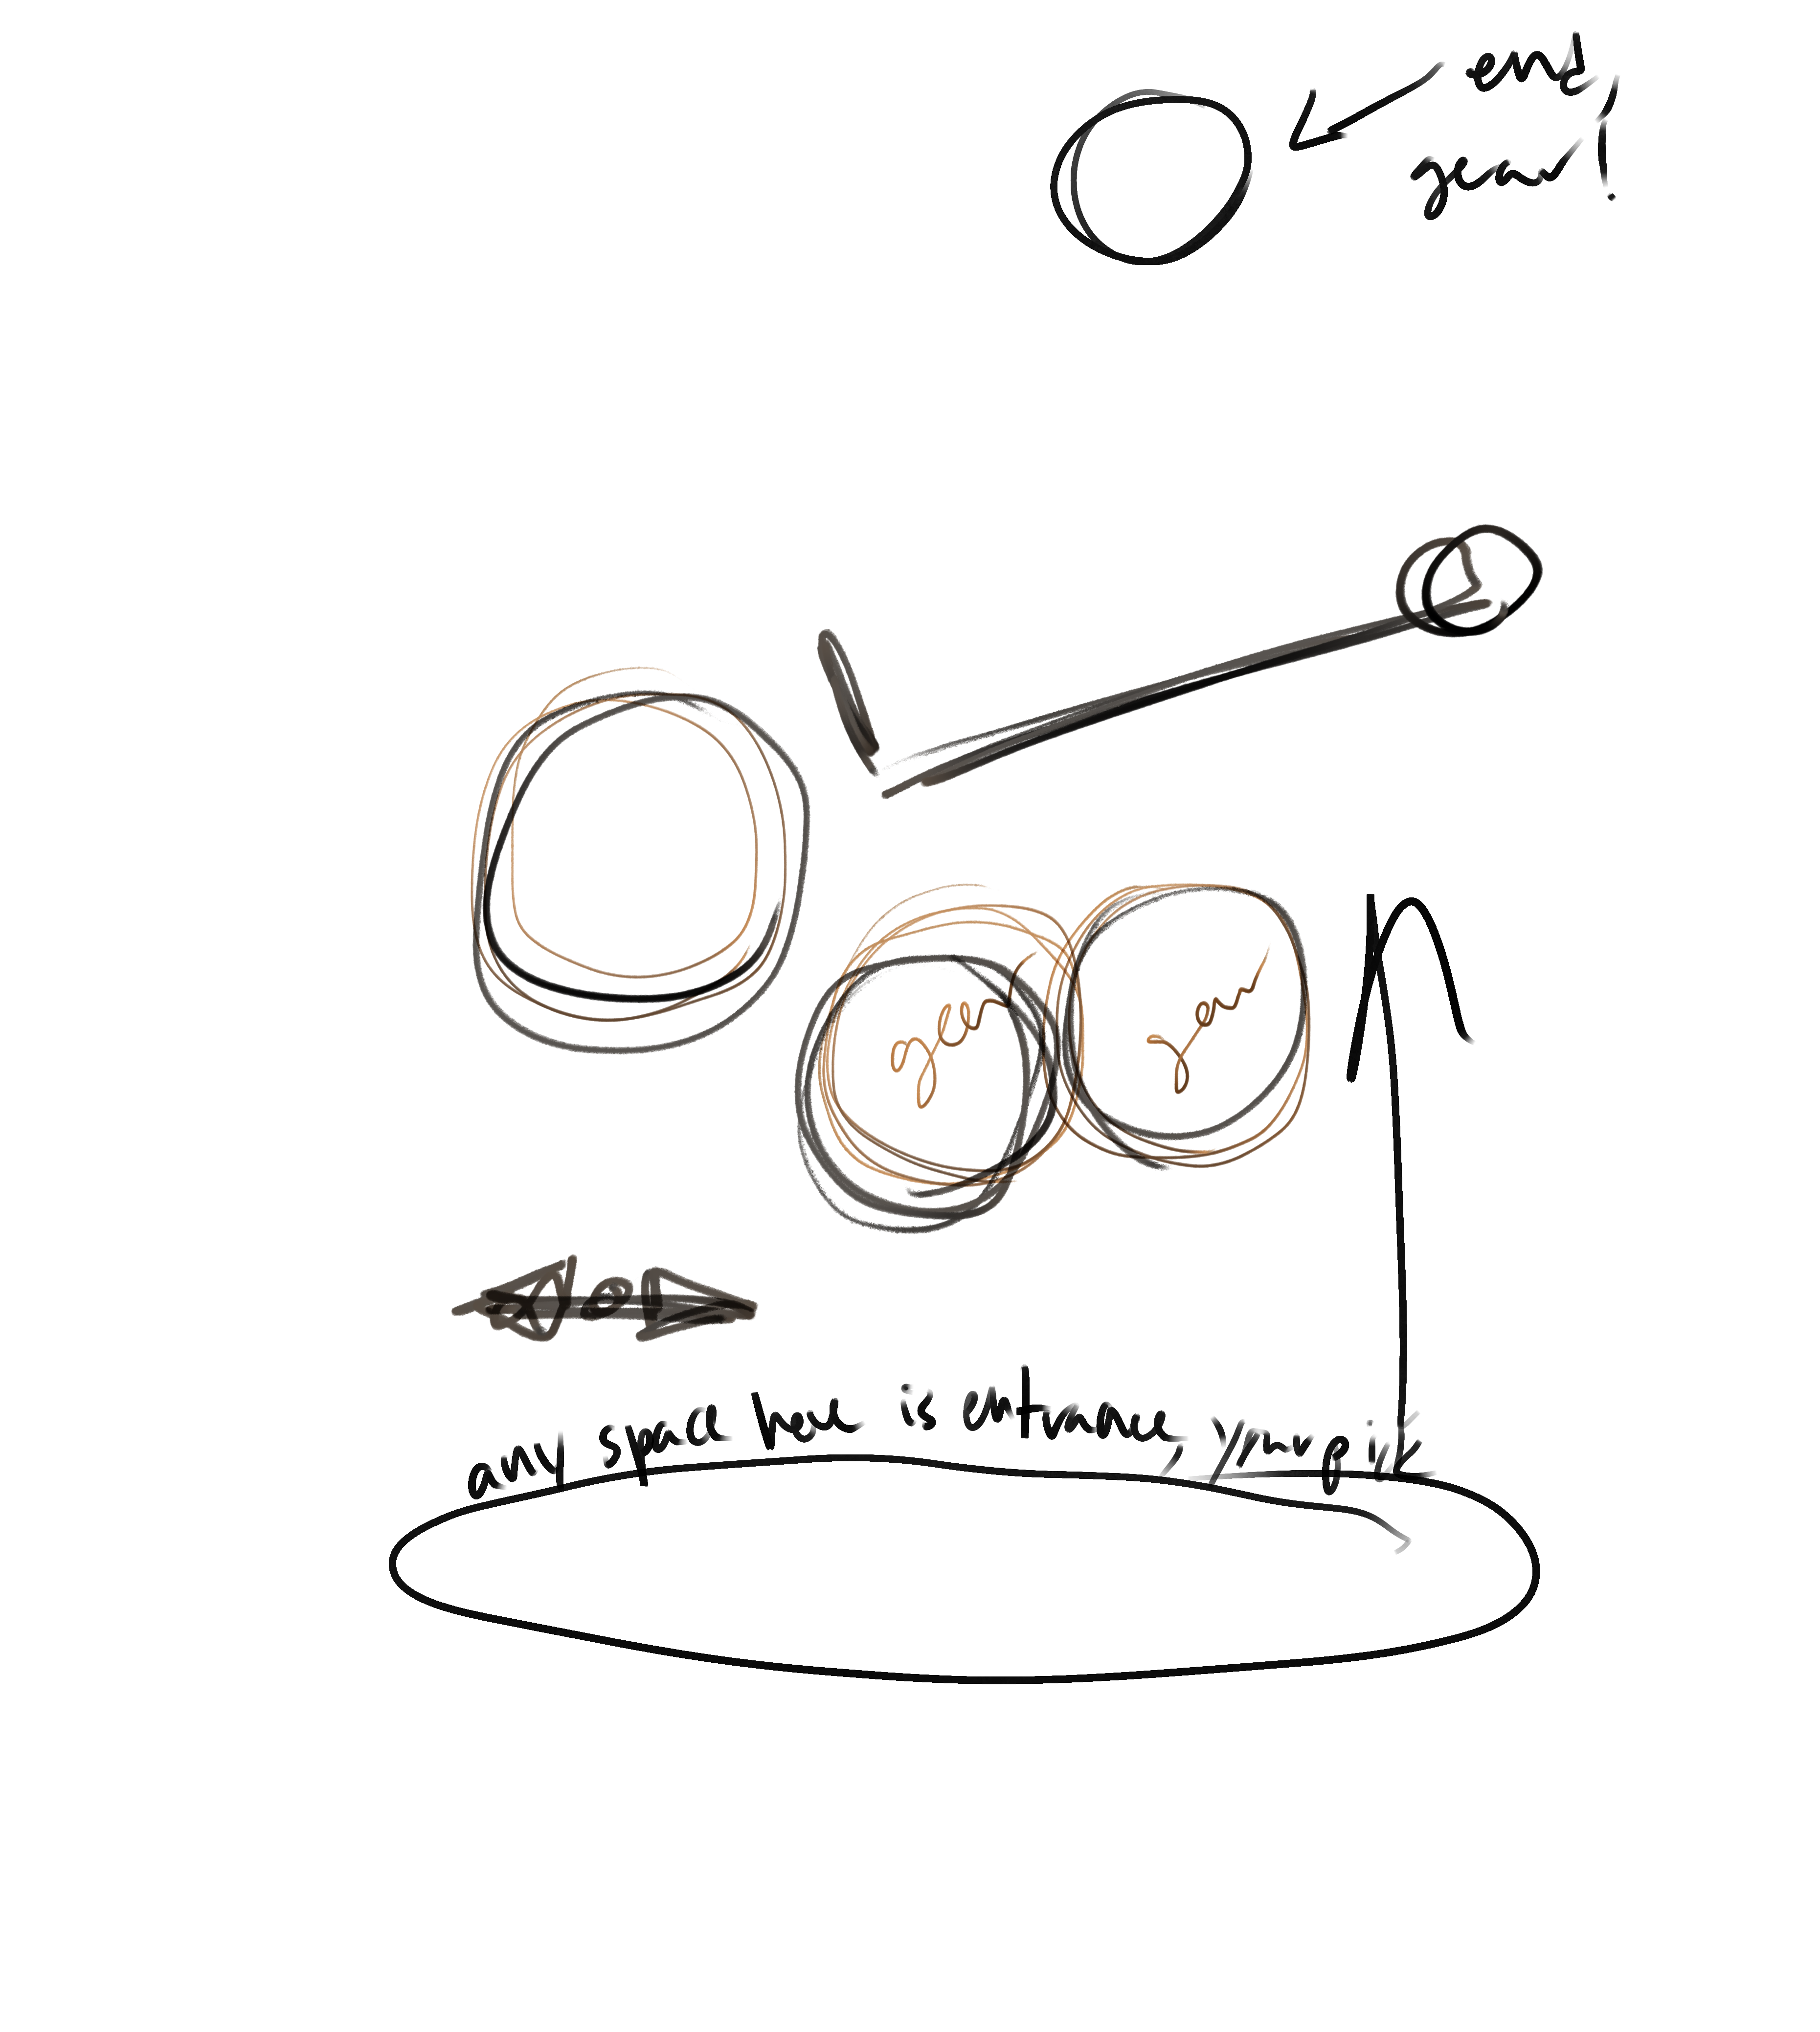 end,
gear!
gear
gear
any space here is entrance, your pick